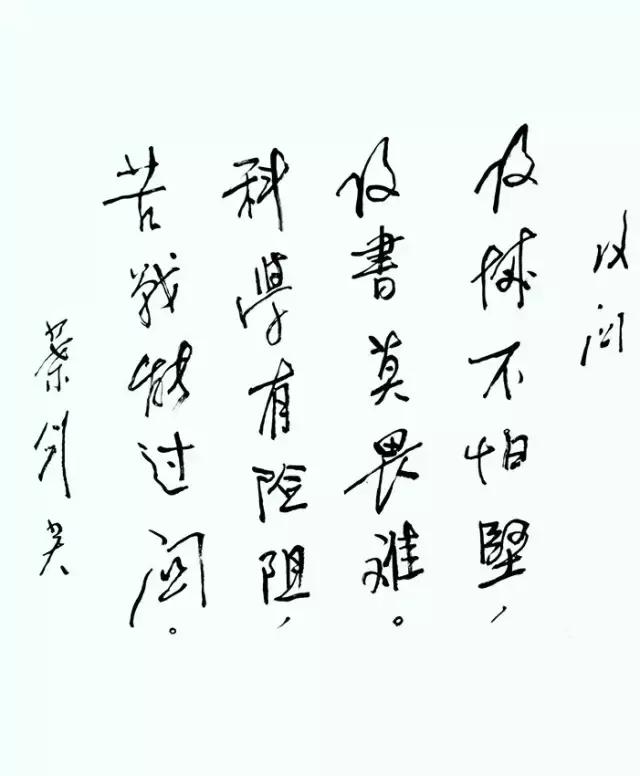 攻关
攻城不怕堅，
攻書莫畏难。
科學有险阻，
苦战能过关。
葉剑英